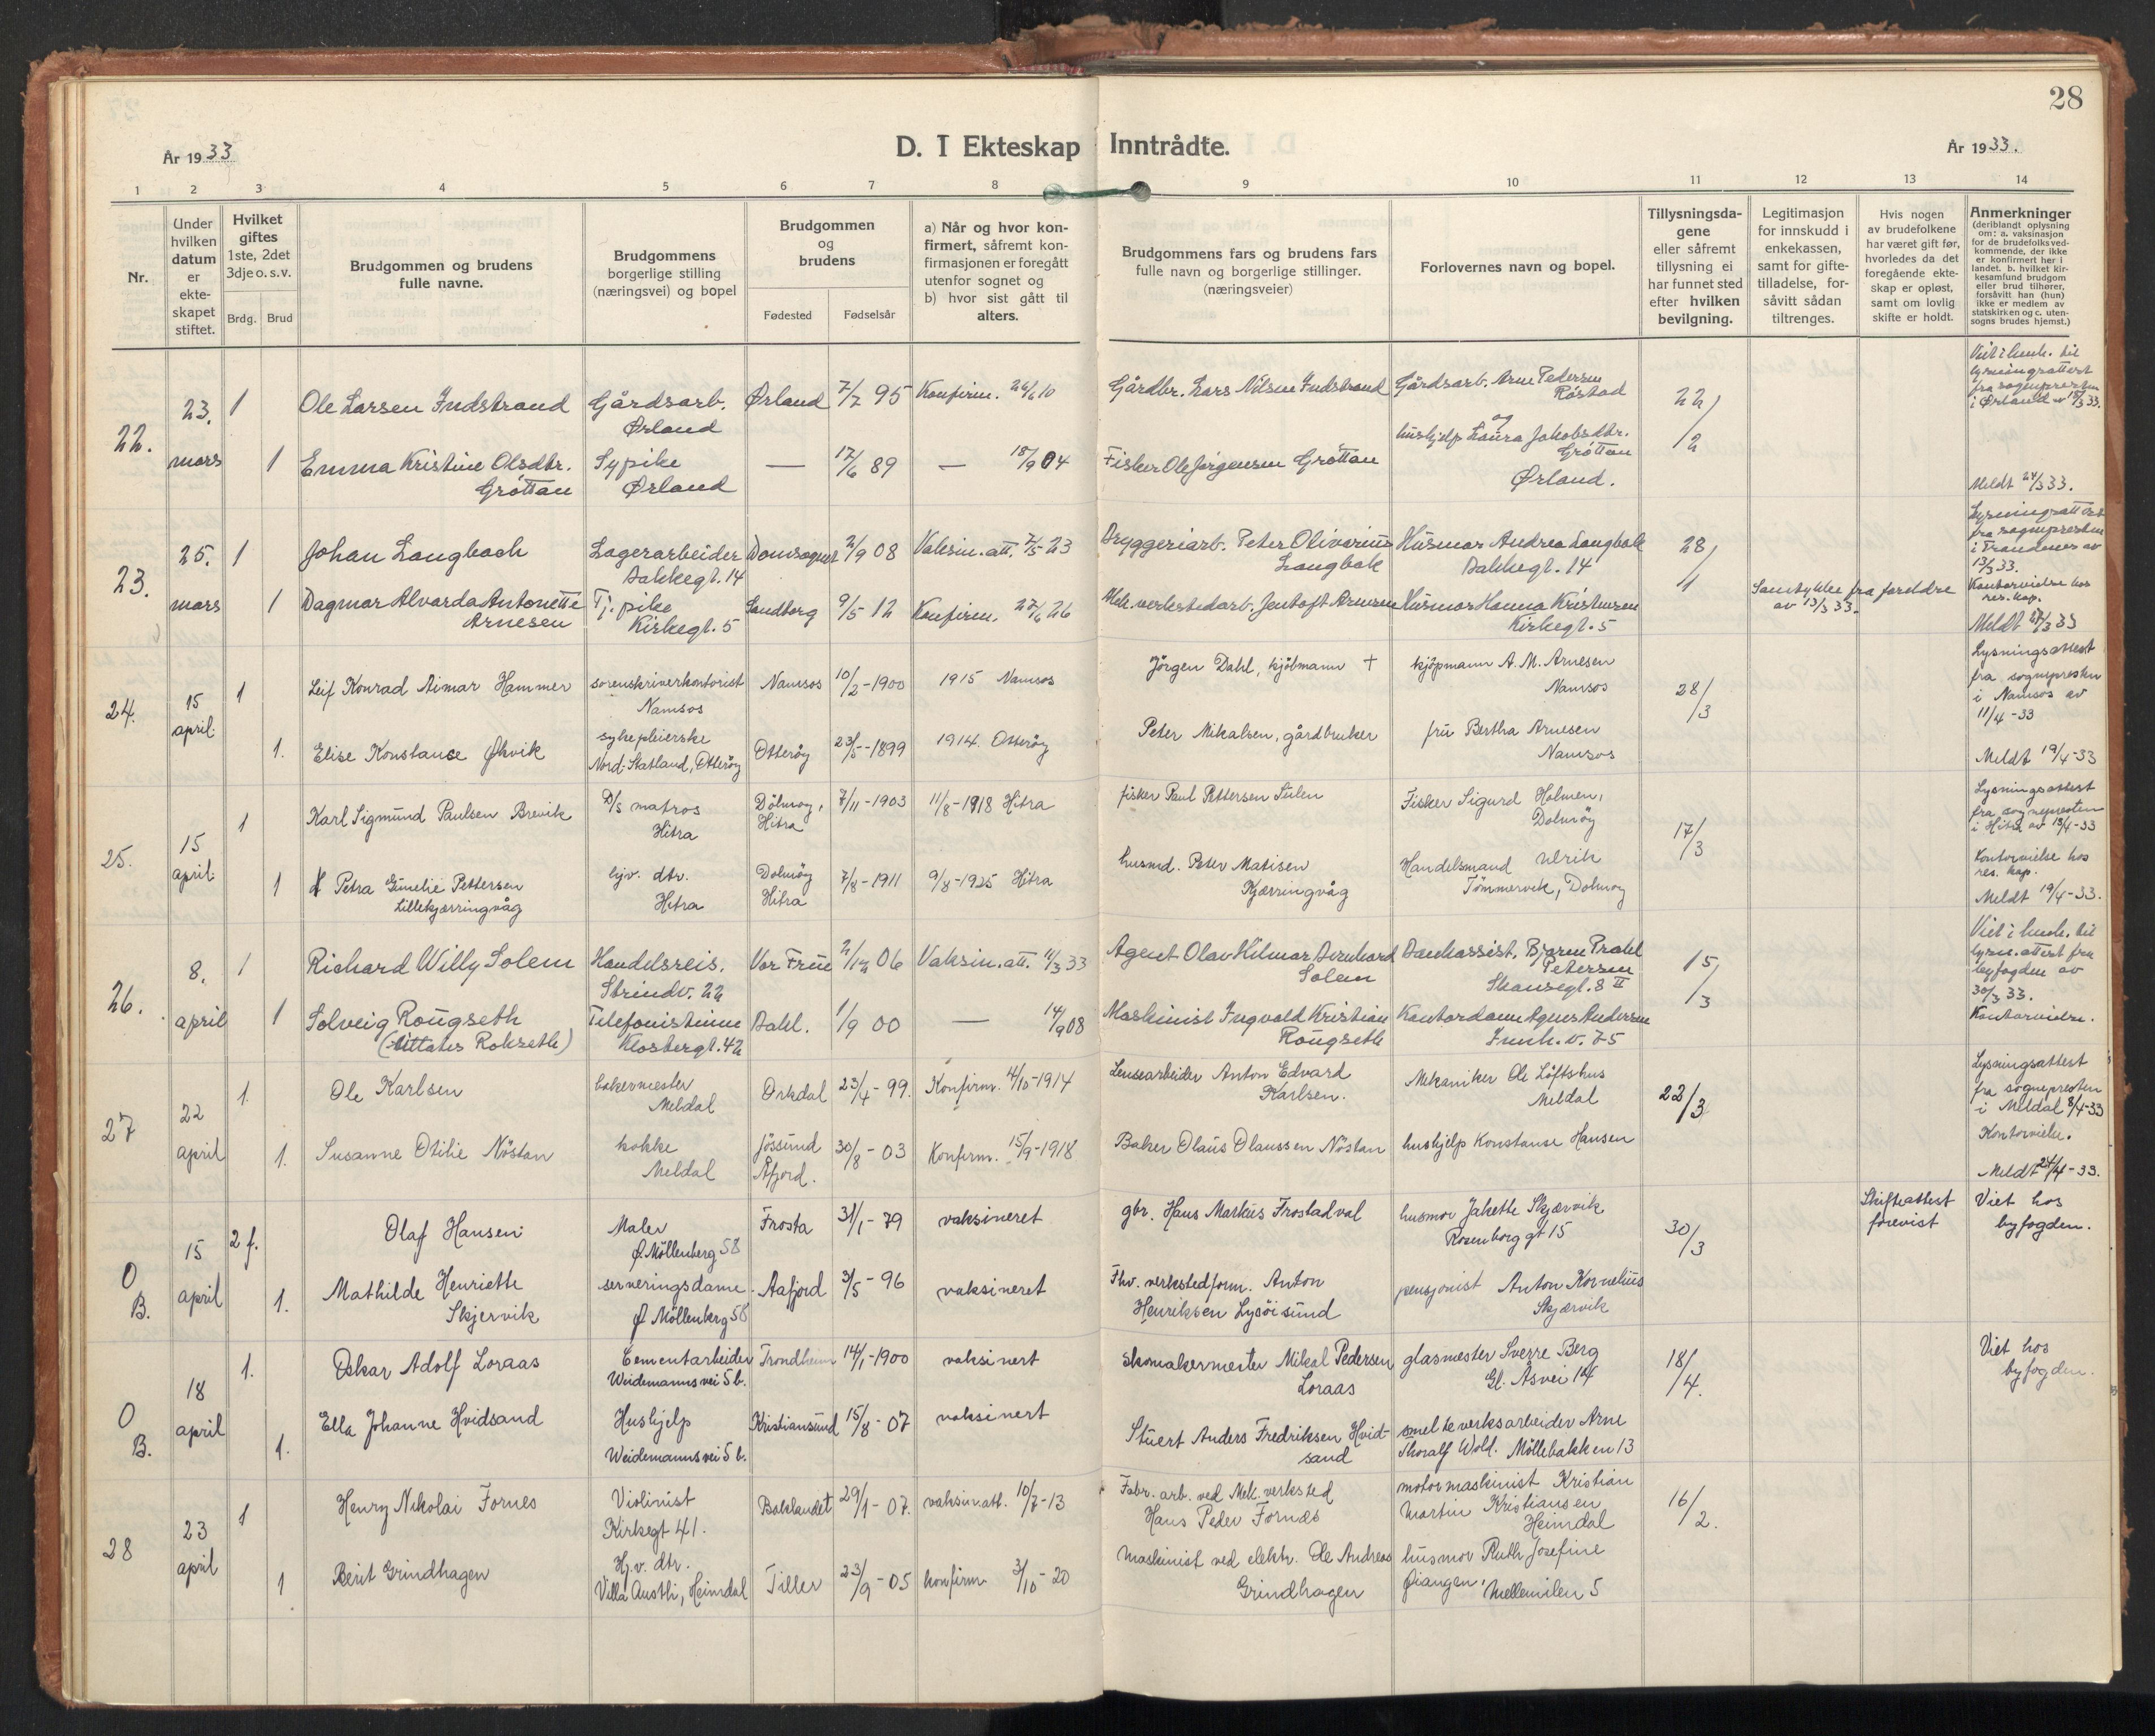 28
År 1933
D. I Ekteskap Inntrådte.
År 1933.
1 2 3 4 5 6 7 8 9 10 11 12 13 14
Nr.
Under hvilken datum er ekte-skapet stiftet.
Hvilket giftes 1ste, 2det 3dje o. s. v.
Brdg. Brud
Brudgommen og brudens fulle navne.
Brudgommens borgerlige stilling (næringsvei) og bopel
Brudgommen og brudens
Fødested Fødselsår
a) Når og hvor kon-firmert, såfremt kon-firmasjonen er foregått utenfor sognet og b) hvor sist gått til alters.
Brudgommens fars og brudens fars fulle navn og borgerlige stillinger. (næringsveier)
Forlovernes navn og bopel.
Tillysningsda-gene eller såfremt tillysning ei har funnet sted efter hvilken bevilgning.
Legitimasjon for innskudd i enkekassen, samt for gifte-tilladelse, for-såvitt sådan tiltrenges.
Hvis nogen av brudefolkene har været gift før, hvorledes da det foregående ekte-skap er opløst, samt om lovlig skifte er holdt.
Anmerkninger (deriblandt oplysning om: a. vaksinasjon for de brudefolks ved-kommende, der ikke er konfirmert her i landet. b. hvilket kir-kesamfund brudgom eller brud tilhører, forsåvitt han (hun) ikke er medlem av statskirken og c. uten-sogns brudes hjemst.)
22. 23. mars
1 Ole Larsen Indstrand Gårdsarb. Ørland Ørland 7/7 95 Konfirm. 26/6 10 Gårdbr. Lars Nilsen Indstrand Gårdsarb. Arne Pedersen Røstad 22/2
og
1 Emma Kristine Olsdtr. Grøttan Sypike Ørland — 17/6 89 — 18/9 04 Fisker Ole Jørgensen Grøttan hushjelp Laura Jakobsdtr. Grøttan Ørland.
Viet i henh. til lysningsattest fra sognepresten i Ørland av 18/3 33.
Meldt 24/3 33.
23. 25. mars
1 Johan Langbach Lagerarbeider Bakkegt. 14 Domsognet 2/9 08 Vaksin. att. 2/5 23 Bryggeriarb. Peter Oliverius Langbak Husmor Andrea Langbak Bakkegt. 14 28/1
1 Dagmar Alvarda Antonette Arnesen Tj. pike Kirkegt. 5 Sandborg 9/5 12 Konfirm. 27/6 26 Mek. verkstedarb. Jentoft Arnesen Husmor Hanna Kristensen Kirkegt. 5
Samtykke fra foreldre av 13/3 33.
Lysningsattest fra sognepresten i Trondenes av 13/3 33.
Kontorvielse hos res. kap.
Meldt 27/3 33
24. 15 april
1 Leif Konrad Aimar Hammer sorenskriverkontorist Namsos Namsos 10/2-1900 1915 Namsos Jörgen Dahl, kjöbmann † kjöpmann A. M. Arnesen Namsos 28/3
1. Elise Konstanse Økvik sykepleierske Nord-Statland, Otteröy Otteröy 23/5-1899 1914. Otteröy Peter Mikalsen, gårdbruker fru Bertha Arnesen Namsos
Lysningsattest fra sognepresten i Namsos av 11/4-33
Meldt 19/4-33
25. 15 april
1 Karl Sigmund Paulsen Brevik D/s matros Hitra Dölmöy, Hitra 7/11-1903 11/8-1918 Hitra fisker Paul Pettersen Sulen Fisker Sigurd Holmen, Dolmöy 17/3
1 Petra Emelie Pettersen Lillekjærringvåg hjv. dtr. Hitra Dolmöy Hitra 7/8-1911 9/8-1925 Hitra husmd. Peter Matisen Kjærringvåg Handelsmand Ulrik Tömmervik, Dolmöy
Lysningsattest fra sognepresten i Hitra av 18/4-33
Kontorvielse hos res. kap.
Meldt 19/4-33.
26. 8. april
1 Richard Willy Solem Handelsreis. Strindv. 22 Vor Frue 2/12 06 Vaksin. att. 11/3 33 Agent Olav Hilmar Bernhard Solem Bankassist. Bjarne Prahl Petersen Skansegt. 8 II 15/3
1 Solveig Rougseth Telefonistinne Klosbergt. 42 Bakl. 1/9 00 — 14/9 08 Maskinist Ingvald Kristian Rougseth Kontordame Agnes Andersen Innh. v. 75
Viet i henh. til lysn. attest fra byfogden av 30/3 33.
Kontorvielse.
27 22 april
1. Ole Karlsen bakermester Meldal Orkdal 23/4-99. Konfirm. 4/10-1914 Lensearbeider Anton Edvard Karlsen. Mekaniker Ole Löftshus Meldal 22/3
1. Susanne Otilie Nöstan kokke Meldal Jössund Åfjord. 30/8-03 Konfirm. 15/9-1918 Baker Olaus Olaussen Nöstan hushjelp Konstanse Hansen
Lysningsattest fra sognepresten i Meldal 8/4-33
Kontorvielse.
Meldt 24/4-33.
0 B. 15 april
2 f. Olaf Hansen Maler Ø. Möllenberg 58 Frosta 31/1-79 vaksineret gbr. Hans Markus Frostadval husmor Jakette Skjærvik Rosenborg gt 15 30/3
Skifteattest forevist
Viet hos byfogden.
1. Mathilde Henriette Skjervik serveringsdame Ø Möllenberg 58 Aafjord 3/5-96 vaksineret Fhv. verkstedform. Anton Henriksen Lysöisund pensjonist Anton Kornelius Skjærvik
0 B. 18 april
1. Oskar Adolf Loraas Cementarbeider Weidemannsvei 5 b. Trondheim 14/1-1900 vaksinert Skomakermester Mikal Pedersen Loraas glasmester Sverre Berg Gl. Åsvei 14 18/4.
Viet hos byfogden.
1. Ella Johanne Hvidsand Hushjelp Weidemannsvei 5 b. Kristiansund 15/8-07 vaksinert Stuert Anders Fredriksen Hvid-sand smelteverksarbeider Arne Thoralf Wold. Möllebakken 13
28 23 april
1 Henry Nikolai Fornes Violinist Kirkegt 41. Baklandet 29/1-07. vaksinatt. 10/7-13 Fabr. arb. ved Mek. verksted Hans Peder Fornæs motormaskinist Kristian Martin Kristiansen Heimdal 16/2.
1 Berit Grindhagen Hj. v. dtr. Villa Austli, Heimdal Tiller 23/9-05 konfirm 3/10-20 Maskinist ved elektr. Ole Andreas Grindhagen husmor Ruth Josefine Øiangen, Mellemilen 5